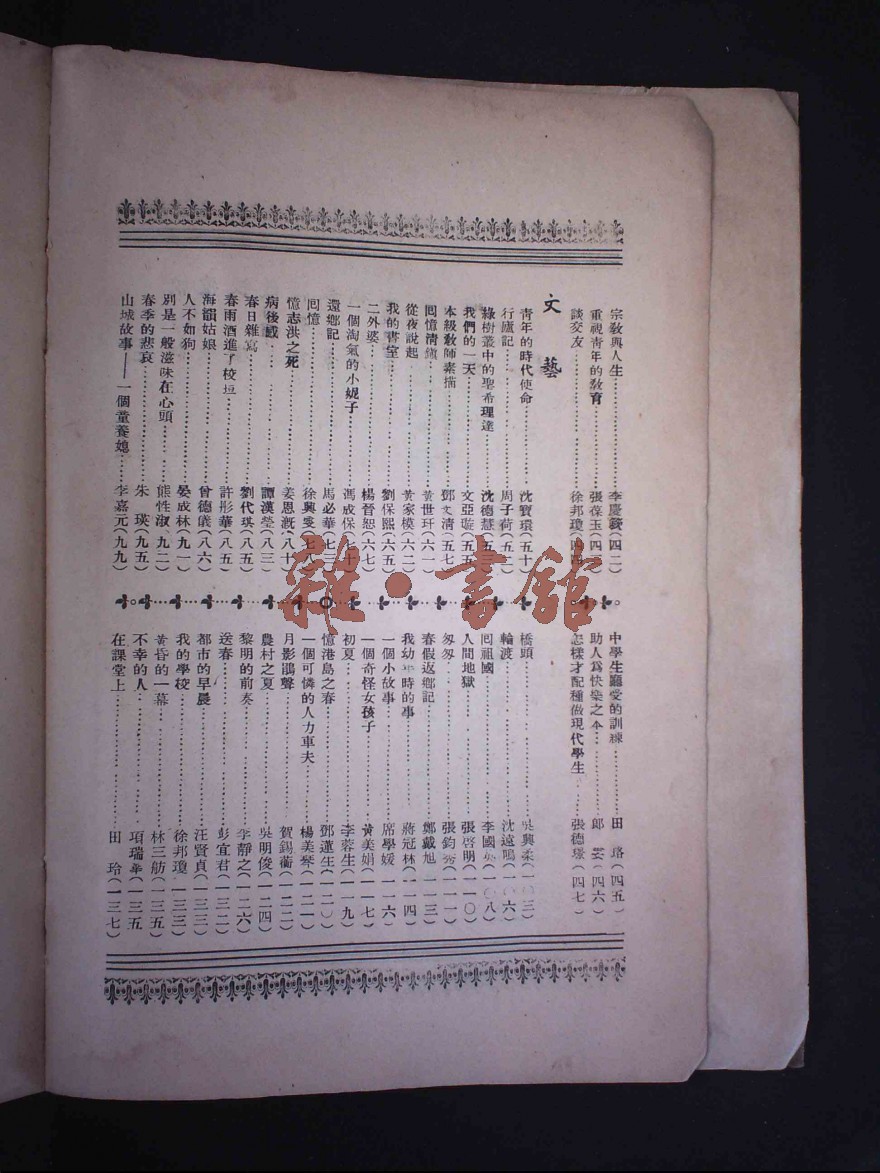 宗教與人生……李慶𥳑(四二)
重視青年的教育……張葆玉(四
談交友……徐邦瓊(四四)
文藝
青年的時代使命……沈寶環(五十)
行廬記……周子荷(五二)
綠樹叢中的聖希理達……沈德慧(五三)
我們的一天……文亞璇(五五)
本級教師素描……鄧文清(五七)
囘憶清鎮……黃世玕(六一)
從夜說起……黃家模(六二)
我的書室……劉保熙(六五)
二外婆……楊督恕(六七)
一個淘氣的小妮子……馮成保(七十)
還鄉記……馬必華(七三)
囘憶……徐興斐(七八)
憶志洪之死……姜恩漑(八十)
病後感……譚漢瑩(八三)
春日雜寫……劉代琪(八五)
春雨洒進了校垣……許彤華(八五)
海韻姑娘……曾德儀(八六)
人不如狗……晏成林(九一)
別是一般滋味在心頭……熊性淑(九二)
春季的悲哀……朱瑛(九五)
山城故事——一個童養媳……李嘉元(九九)
中學生應受的訓練……田珞(四五)
助人爲快樂之本……郎(四六)
怎樣才配種做現代學生……張德(四七)
橋頭……吳興柔(一〇三)
輪渡……沈遠鳴(一〇六)
囘祖國……李國(一〇八)
人間地獄……張啓明(一一〇)
匆匆……張鈞秀(一一一)
春假返鄉記……鄭戴旭(一一三)
我幼年時的事……蔣冠林(一一四)
一個小故事……席學媛(一一六)
一個奇怪女孩子……黃美娟(一一七)
初夏……李蓉生(一一九)
憶港島之春……鄧蓮生(一二〇)
一個可憐的人力車夫……楊美琴(一二一)
月影鵑聲……賀錫蘅(一二二)
農村之夏……吳明俊(一二四)
黎明的前奏……李靜之(一二六)
送春……彭宜君(一三二)
都市的早晨……汪賢貞(一三三)
我的學校……徐邦瓊(一三三)
黃昏的一幕……林三舫(一三五)
不幸的人……項瑞華(一三五
在課堂上……田玲(一三七)
雜·書館